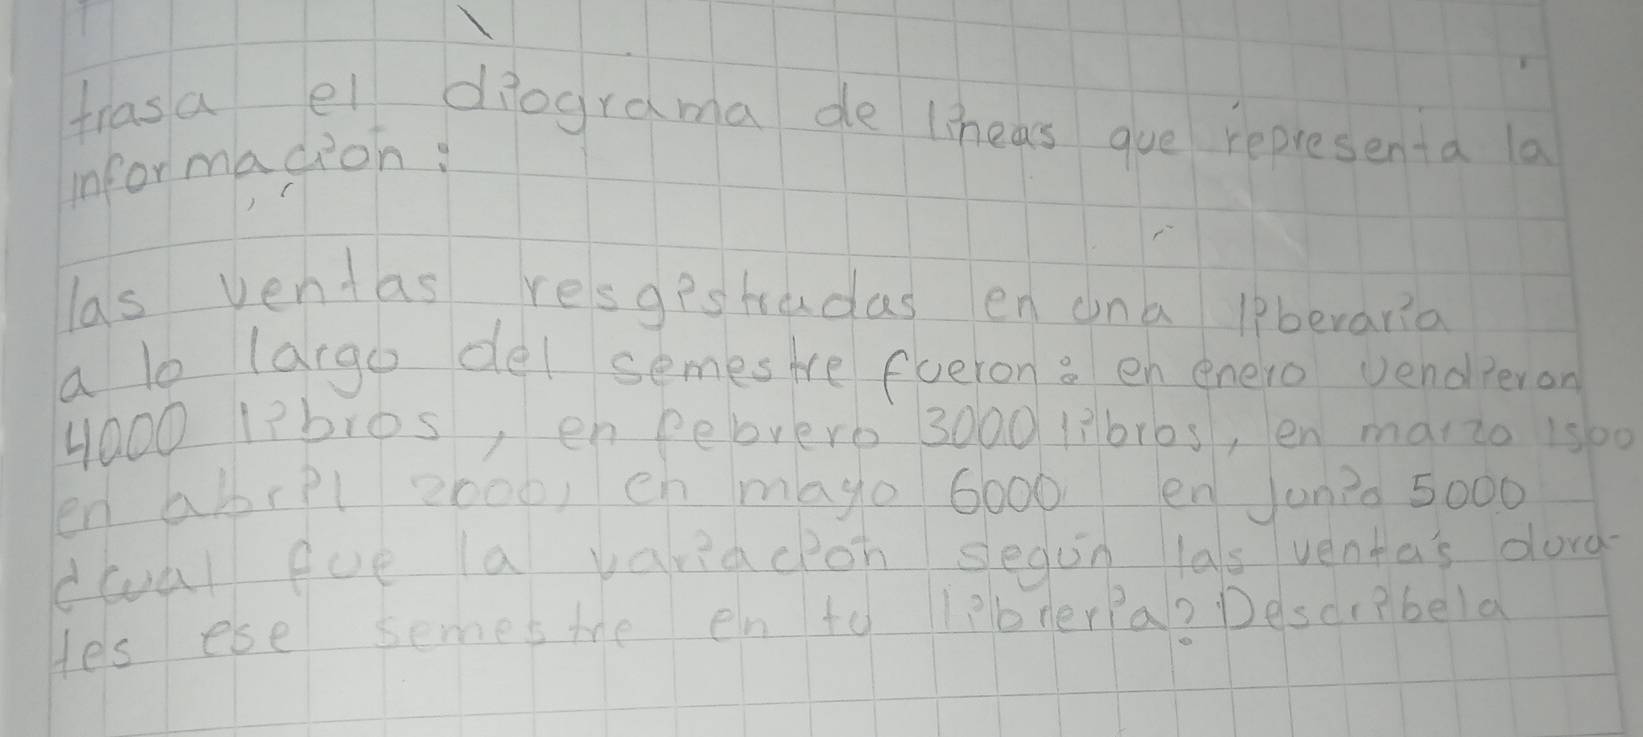 trasa el diograma de lineas que representa la
informacion:
las ventas resgistradas en una liberaria
a lo largo del semestre fueron: en enero vendieron
4000 libros, en febrero 3000 libros, en marzo 1500
en abril 2000, en mayo 6000 en junio 5000
cual fue la variacion segun las ventas dura-
tes ese semestre en tu libreria? Describela